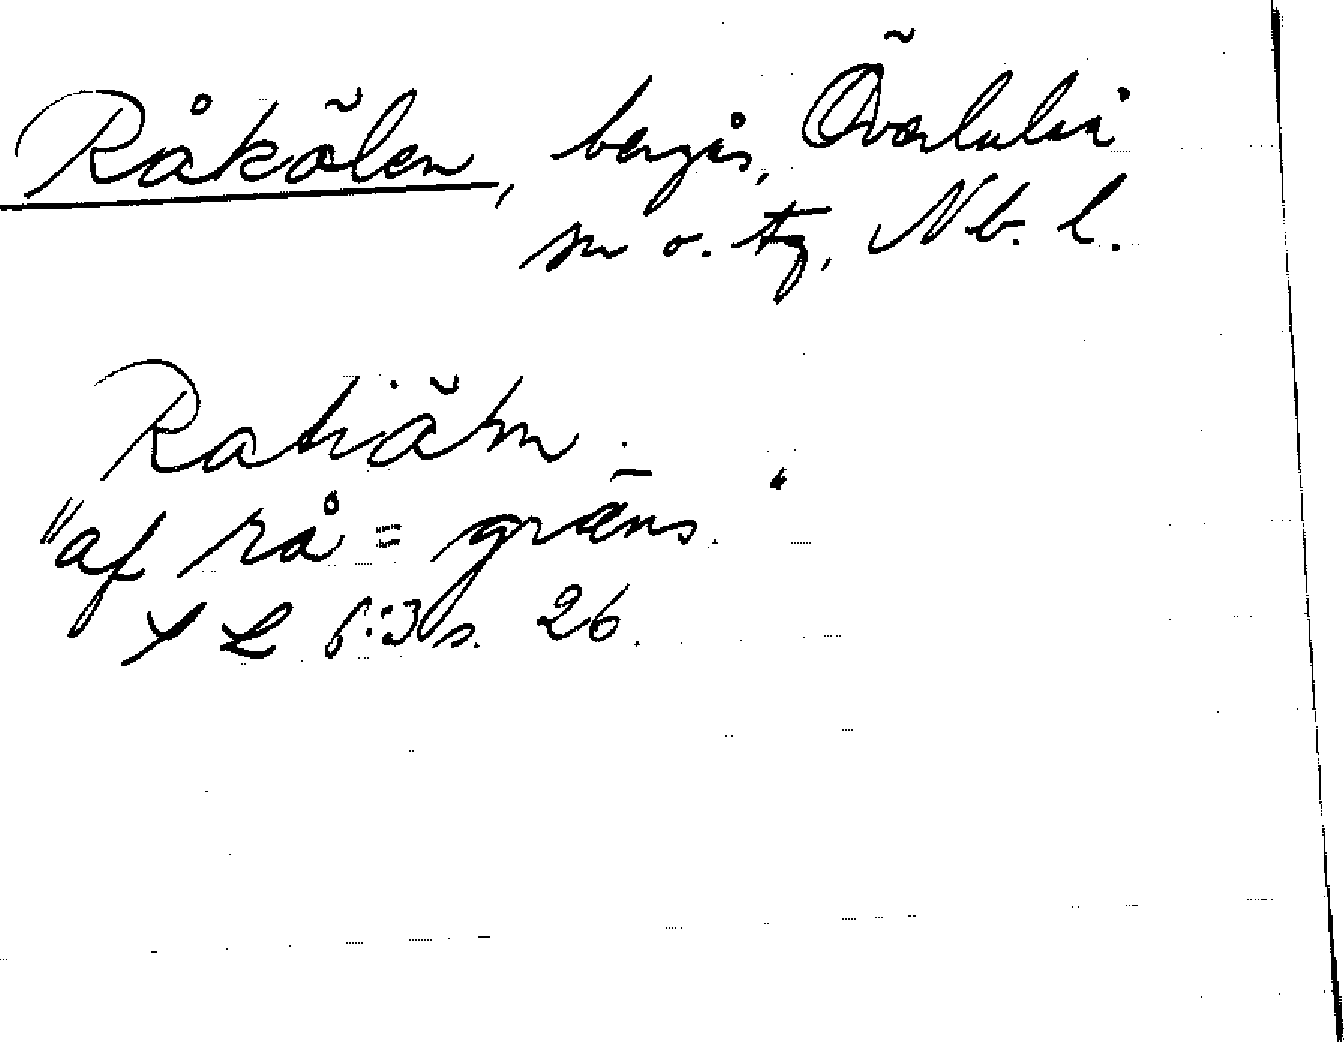 Råkölen, bergås, Överluleå
sn o. tg, Nb. l.
"af rå = gräns."
S L 6:3 s. 26.